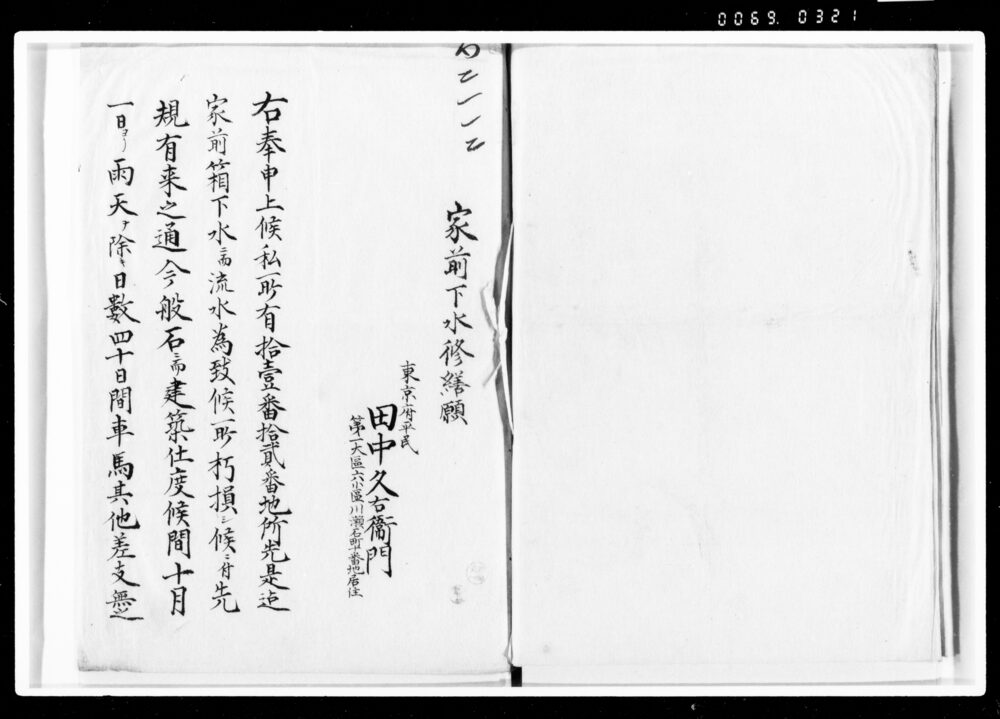 0069. 0321
家前下水修繕願
東京府平民
田中久右衞門
第一大區六小區川瀬石町十番地居住
右奉申上候私所有拾壹番拾貳番地所先是迠
家前箱下水ニ而流水為致候所朽損シ候ニ付先
規有来之通今般石ニ而建築仕度候間十月
一日ヨリ雨天ヲ除キ日數四十日間車馬其他差支無之